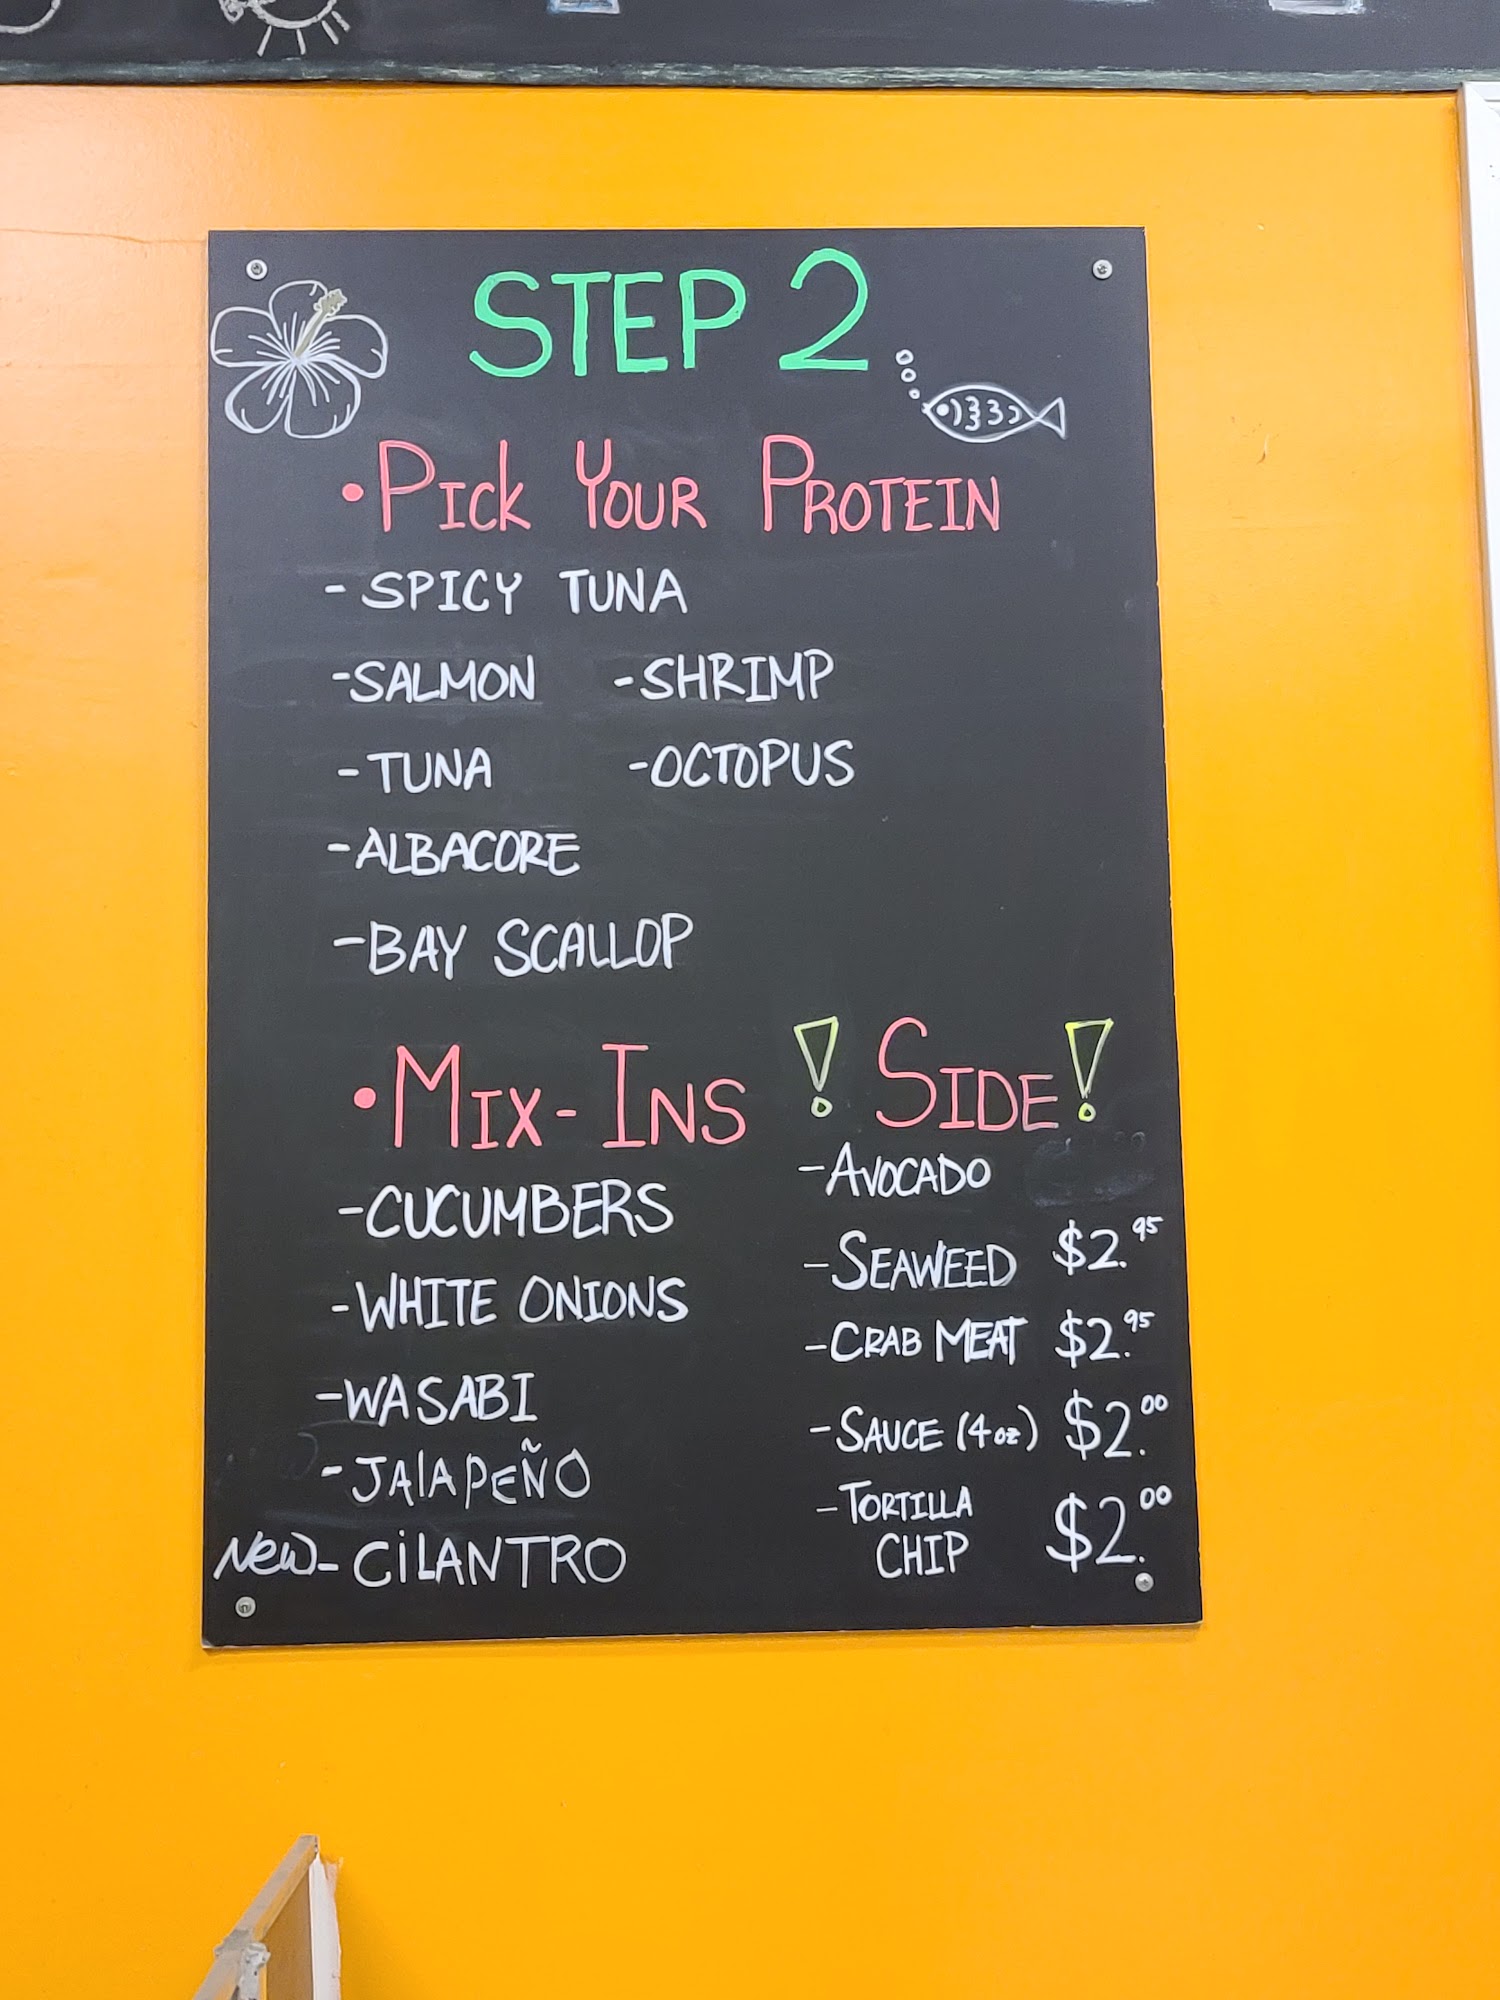 STEP 2
• PICK YOUR PROTEIN
- SPICY TUNA
- SALMON - SHRIMP
- TUNA - OCTOPUS
- ALBACORE
- BAY SCALLOP
• MIX-INS
- CUCUMBERS
- WHITE ONIONS
- WASABI
- JALAPEÑO
NEW - CILANTRO
! SIDE!
- AVOCADO
- SEAWEED $2.95
- CRAB MEAT $2.95
- SAUCE (4oz) $2.00
- TORTILLA
CHIP $2.00